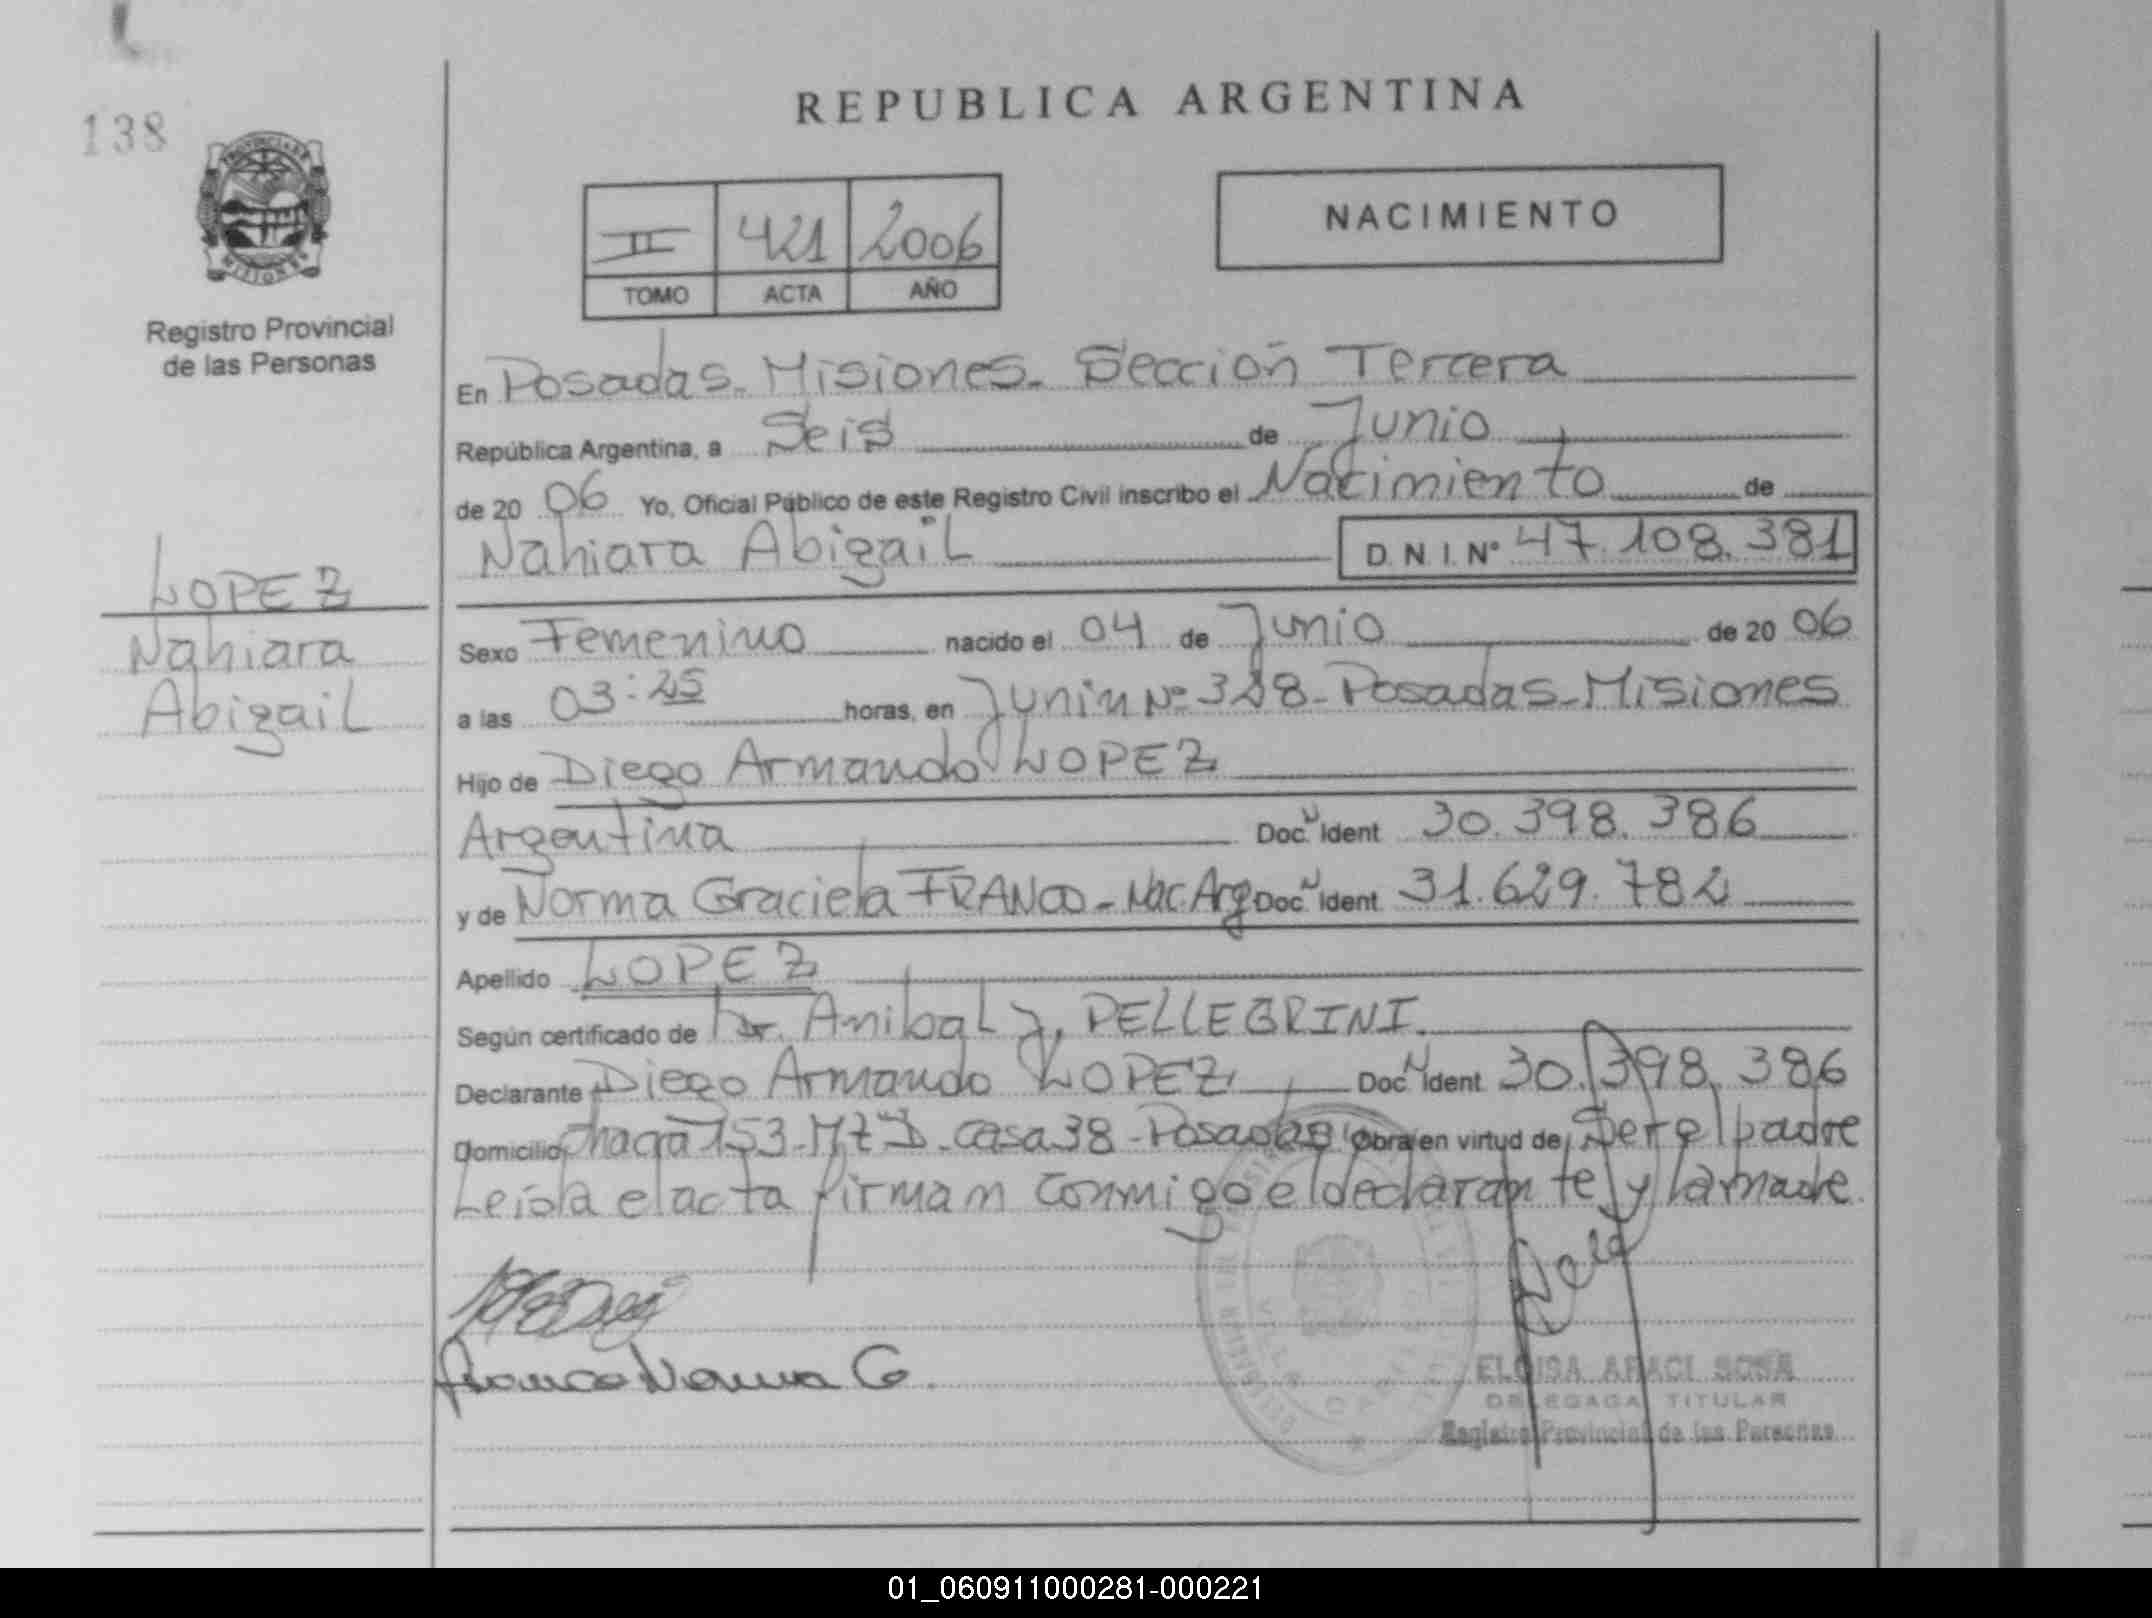 138
REPUBLICA ARGENTINA
PROVINCIA DE MISIONES
Registro Provincial
de las Personas
II 421 2006
TOMO ACTA AÑO
NACIMIENTO
En Posadas - Misiones - Sección Tercera
República Argentina, a Seis de Junio
de 20 06 Yo, Oficial Público de este Registro Civil inscribo el Nacimiento de
Nahiara Abigail D.N.I. N° 47.108.381
LOPEZ
Nahiara
Abigail
Sexo Femenino nacido el 04 de Junio de 20 06
a las 03:25 horas, en Junin Nº 328 - Posadas - Misiones
Hijo de Diego Armando LOPEZ
Argentina Doc. Ident 30.398.386
y de Norma Graciela FRANCO - Nac. Arg Doc. Ident 31.629.782
Apellido LOPEZ
Según certificado de Dr. Anibal J. PELLEGRINI.
Declarante Diego Armando LOPEZ Doc. Ident 30.398.386
Domicilio Chacra 153 - Mz D - casa 38 - Posadas Obra en virtud de Ser el padre
Leída el acta firman conmigo el declarante y la madre.
Franco Norma G.
ELOISA ARACI SOSA
DELEGADA TITULAR
Registro Provincial de las Personas
01_060911000281-000221